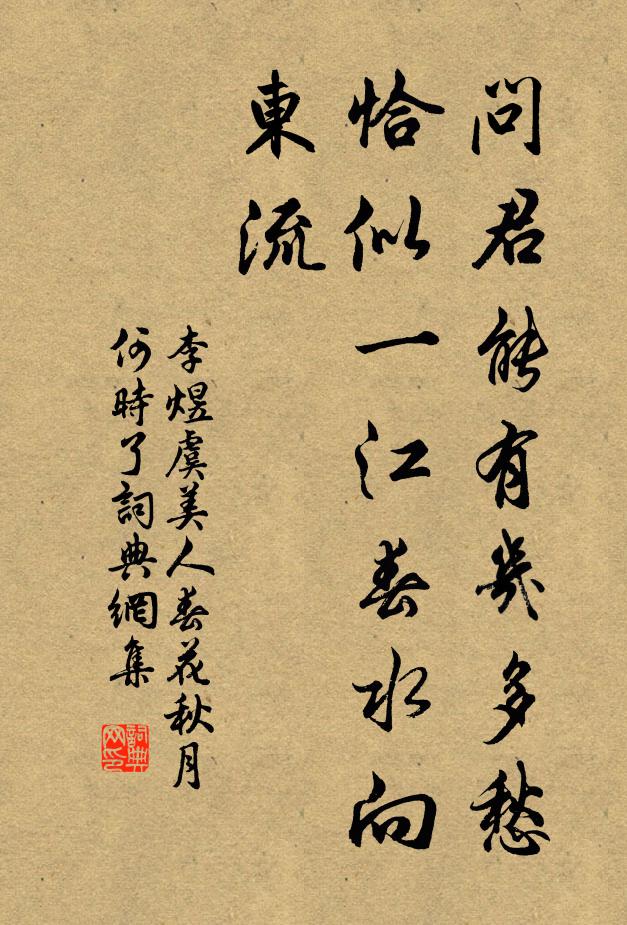 問君能有幾多愁
恰似一江春水向
東流
李煜虞美人春花秋月
何時了詞典網集
詞典網印